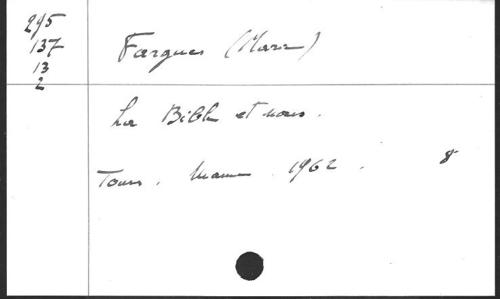 295
137
13
2
Fargues (Marc)
La Bible et nous.
Tours. Mame. 1962. 8°